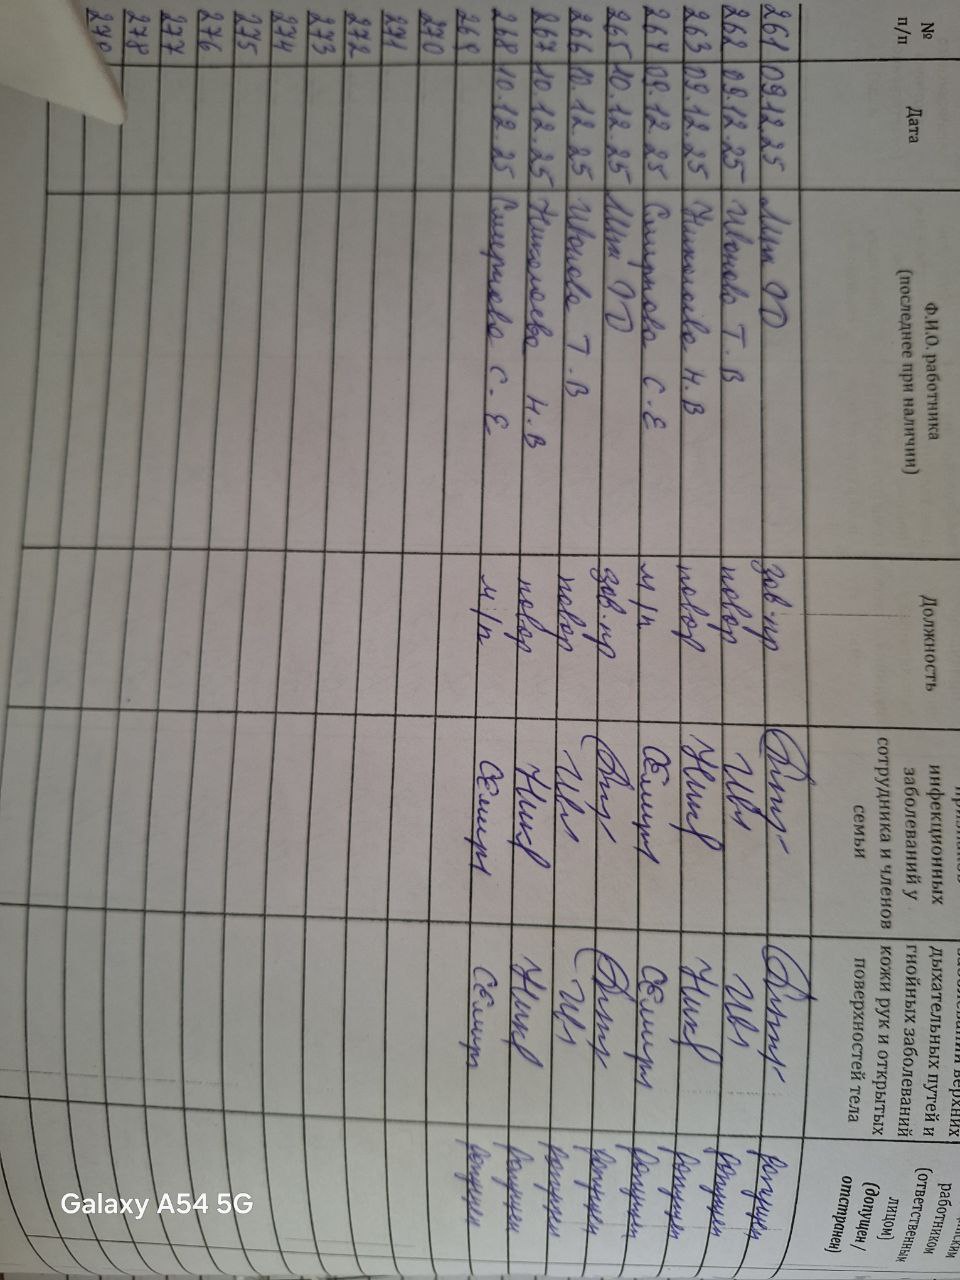 № п/п
Дата
Ф.И.О. работника
(последнее при наличии)
Должность
инфекционных
заболеваний у
сотрудника и членов
семьи
заболеваний верхних
дыхательных путей и
гнойных заболеваний
кожи рук и открытых
поверхностей тела
работником
(ответственным
лицом)
(допущен /
отстранен)
261 09.12.25 зав.пр допущен
262 09.12.25 Иванова Т.В повар Ив допущен
263 09.12.25 Николаева Н.В повар допущен
264 09.12.25 Смирнова С.Е м/п допущен
265 10.12.25 зав.пр допущен
266 10.12.25 Иванова Т.В повар допущен
267 10.12.25 Николаева Н.В повар допущен
268 10.12.25 Смирнова С.Е м/п допущен
269
270
271
272
273
274
275
276
277
278
279
Galaxy A54 5G